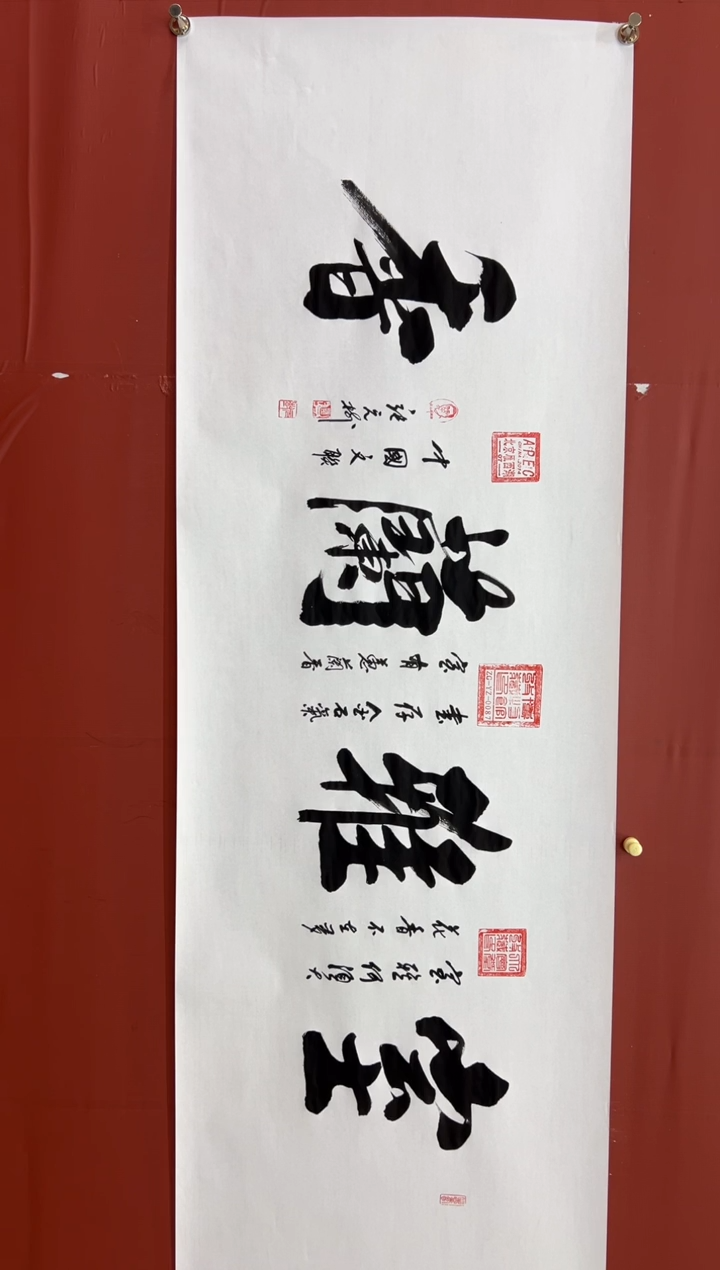 室
室雅何須大
花香不在多
雅
書存金石氣
室有蕙蘭香
蘭
中國文聯
香
A.P.E.C